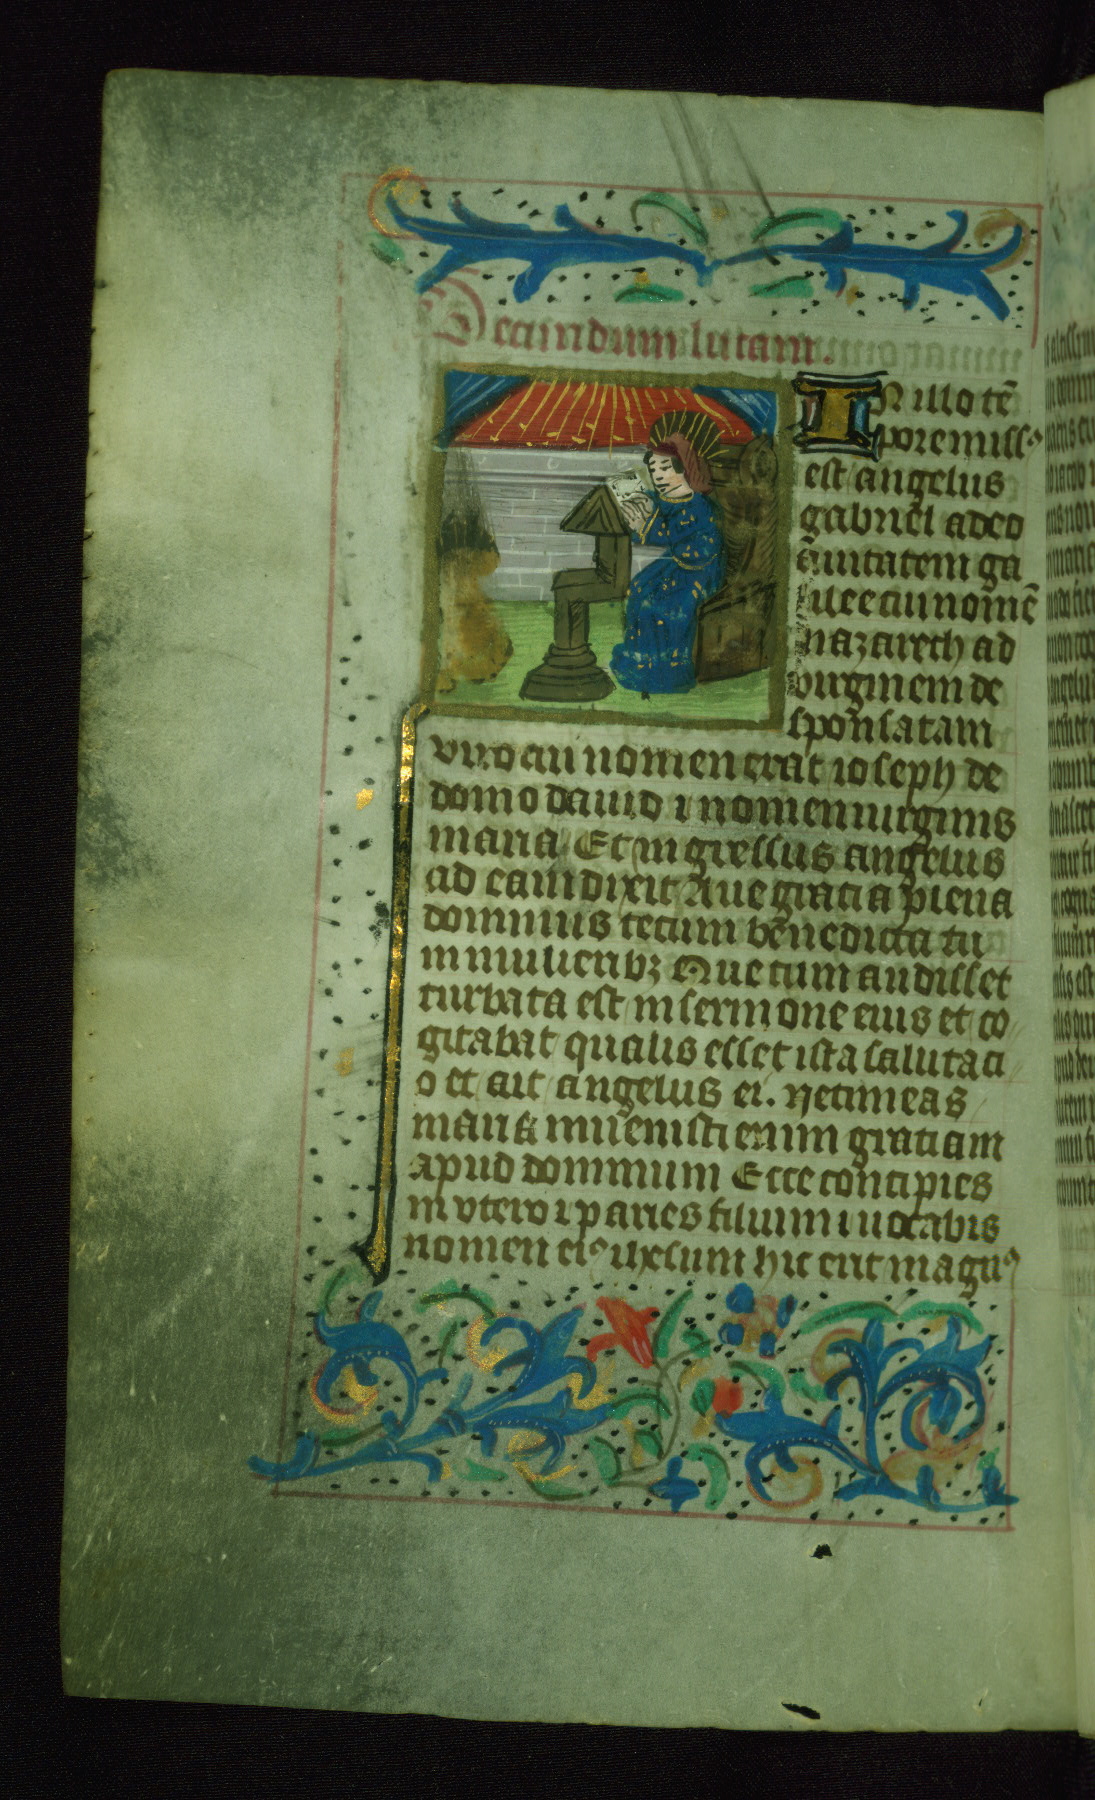 Secundum lucam.
IN illo tē
pore missꝰ
est angelus
gabriel a deo
ciuitatem ga
lilee cui nomē
nazareth ad
virginem de
sponsatam
viro cui nomen erat ioseph de
domo dauid ⁊ nomen uirginis
maria Et ingressus angelus
ad eam dixit Aue gracia plena
dominus tecum bēnedicta tu
in mulieribꝫ Que cum audisset
turbata est in sermone eius et co
gitabat qualis esset ista salutaci
o et ait angelus ei. Ne timeas
maria inuenisti enim gratiam
apud dominum Ecce concipies
in vtero ⁊ paries filium ⁊ uocabis
nomen eiꝰ ihesum hic erit magnꝰ